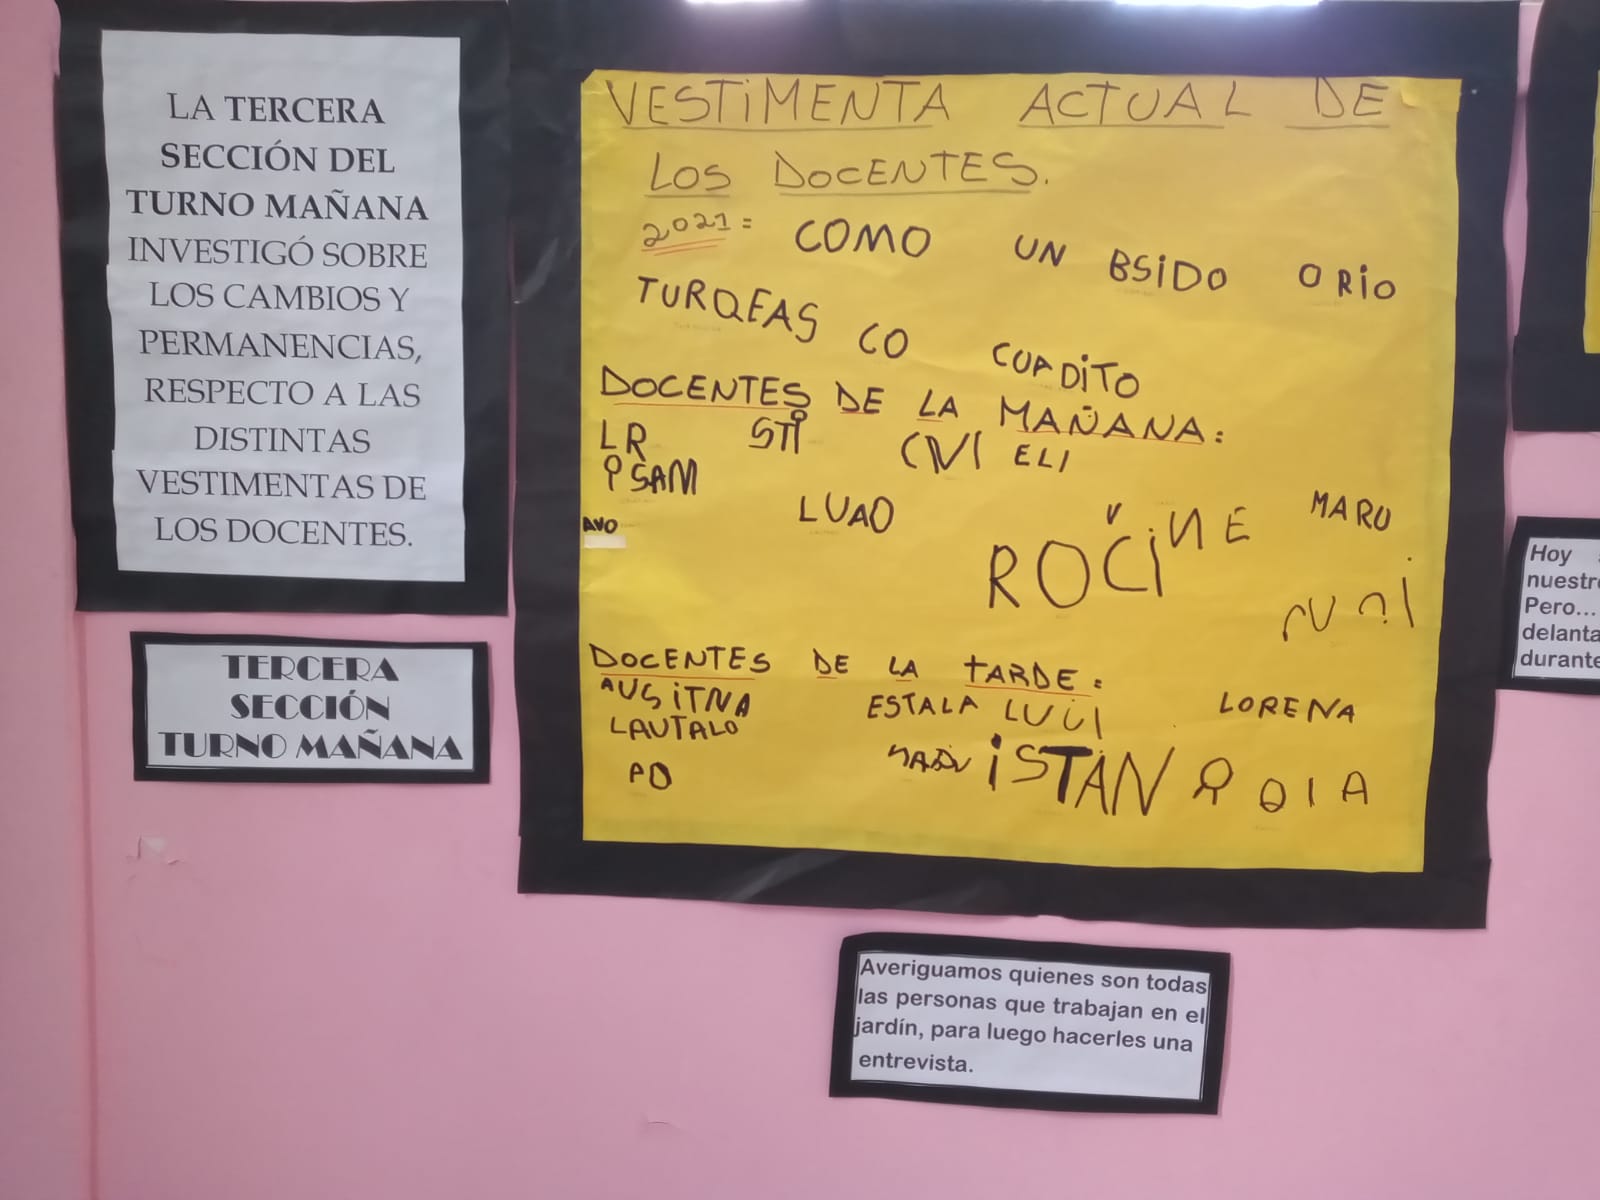 LA TERCERA
SECCIÓN DEL
TURNO MAÑANA
INVESTIGÓ SOBRE
LOS CAMBIOS Y
PERMANENCIAS,
RESPECTO A LAS
DISTINTAS
VESTIMENTAS DE
LOS DOCENTES.
TERCERA
SECCIÓN
TURNO MAÑANA
VESTIMENTA ACTUAL DE
LOS DOCENTES.
2021: COMO UN BSIDO ORIO
TURQEAS CO CUADITO
DOCENTES DE LA MAÑANA:
LR STI CIVI ELI
PSAM LUAO ROCINE MARU
AVO
DOCENTES DE LA TARDE:
AUSITNA ESTALA LUCI LORENA
LAUTALO ISTAN
PO
Averiguamos quienes son todas
las personas que trabajan en el
jardín, para luego hacerles una
entrevista.
Hoy
nuestr
Pero...
delanta
durante